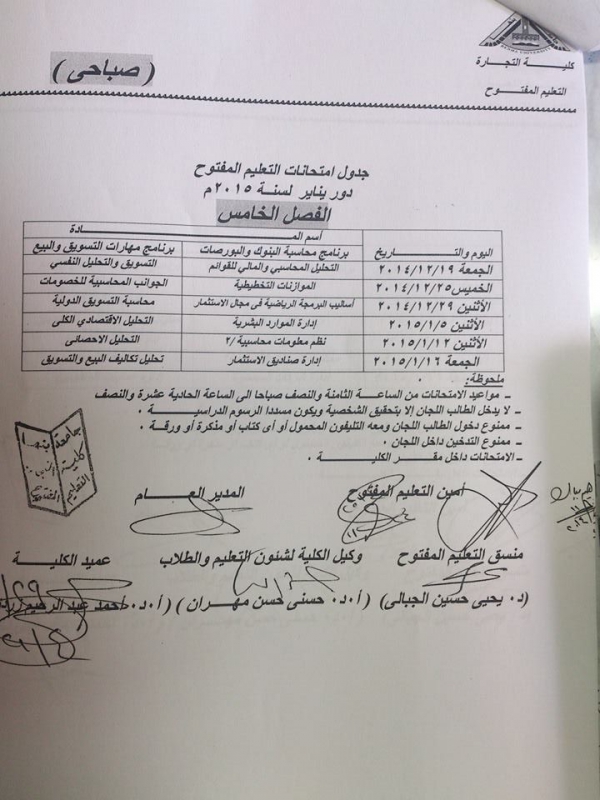 كلية التجارة
التعليم المفتوح
(صباحى)
جدول امتحانات التعليم المفتوح
دور يناير لسنة ٢٠١٥م
الفصل الخامس
اليوم والتاريخ أسم المادة
برنامج محاسبة البنوك والبورصات برنامج مهارات التسويق والبيع
الجمعة ٢٠١٤/١٢/١٩ التحليل المحاسبي والمالي للقوائم التسويق والتحليل النفسي
الخميس ٢٠١٤/١٢/٢٥ الموازنات التخطيطية الجوانب المحاسبية للخصومات
الأثنين ٢٠١٤/١٢/٢٩ أساليب البرمجة الرياضية فى مجال الاستثمار محاسبة التسويق الدولية
الأثنين ٢٠١٥/١/٥ إدارة الموارد البشرية التحليل الاقتصادي الكلى
الأثنين ٢٠١٥/١/١٢ نظم معلومات محاسبية /٢ التحليل الاحصائى
الجمعة ٢٠١٥/١/١٦ إدارة صناديق الاستثمار تحليل تكاليف البيع والتسويق
ملحوظة:
ـ مواعيد الامتحانات من الساعة الثامنة والنصف صباحا الى الساعة الحادية عشرة والنصف
ـ لا يدخل الطالب اللجان إلا بتحقيق الشخصية ويكون مسددا الرسوم الدراسية ٠
ـ ممنوع دخول الطالب اللجان ومعه التليفون المحمول أو أى كتاب أو مذكرة أو ورقة ٠
ـ ممنوع التدخين داخل اللجان ٠
ـ الامتحانات داخل مقر الكلية ٠
جامعة بنها
كلية
التعليم
المفتوح
أمين التعليم المفتوح المدير العام
منسق التعليم المفتوح وكيل الكلية لشئون التعليم والطلاب عميد الكلية
(د٠ يحيى حسين الجبالى) (أ٠د٠ حسنى حسن مهران) (أ٠د٠ أحمد عبد الرحيم